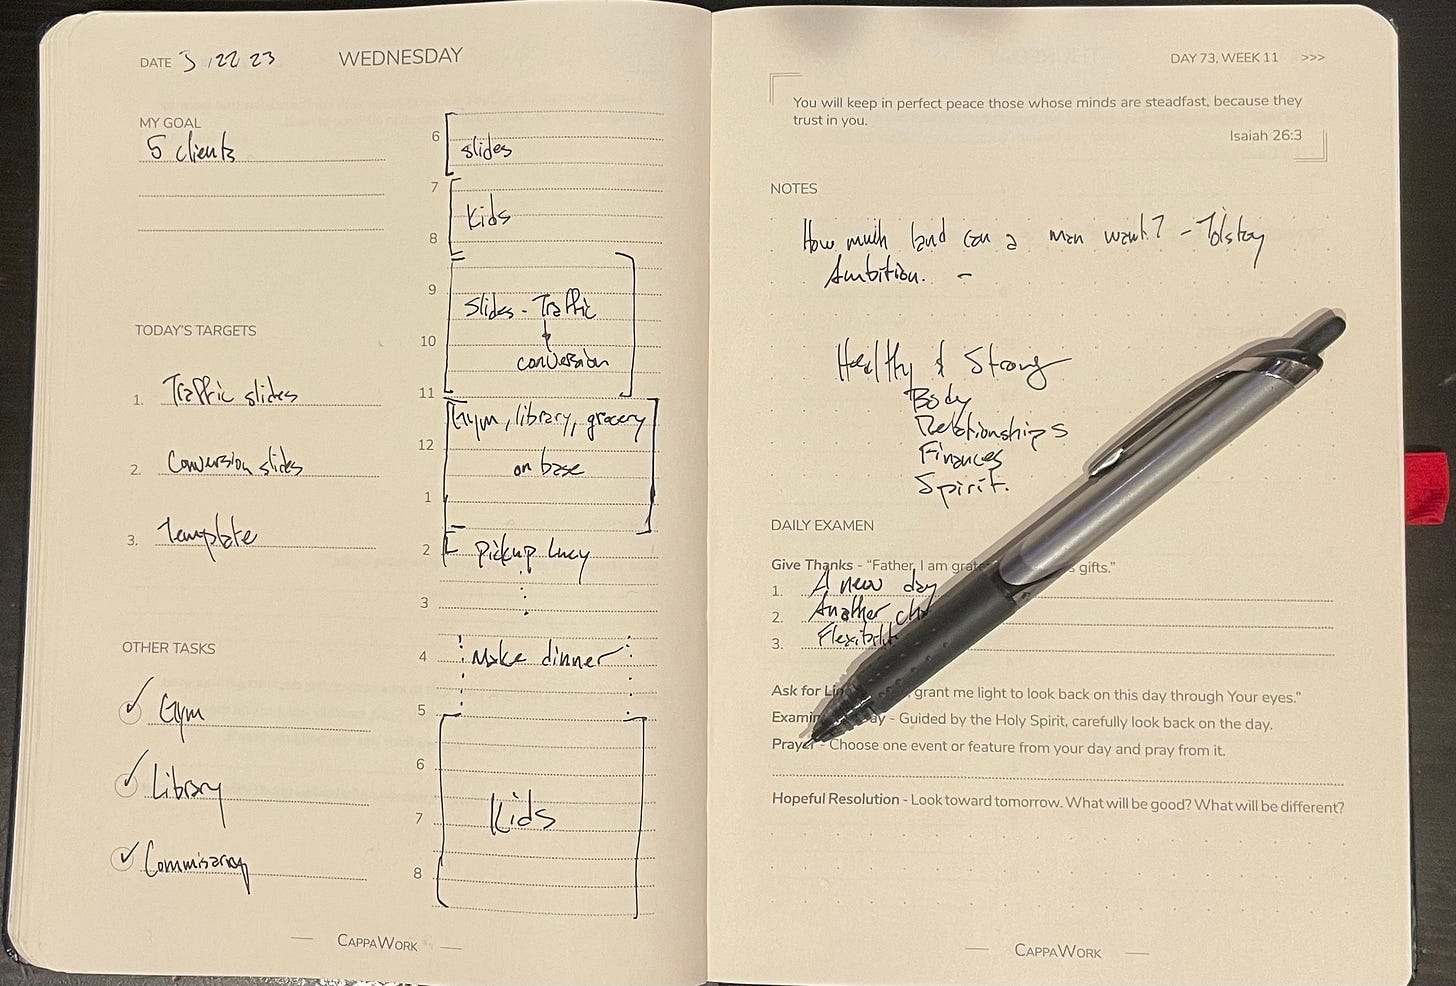 DATE 3/22 23 WEDNESDAY
MY GOAL
5 clients
TODAY'S TARGETS
1. Traffic slides
2. Conversion slides
3. Template
OTHER TASKS
Gym
Library
Commissary
6 slides
7
Kids
8
9
Slides - Traffic
10
conversion
11
Gym, library, grocery
12
on base
1
2 pickup Lucy
3
4 Make dinner
5
6
7 Kids
8
CAPPAWORK
DAY 73, WEEK 11 >>>
You will keep in perfect peace those whose minds are steadfast, because they
trust in you.
Isaiah 26:3
NOTES
How much land can a man want? - Tolstoy
Ambition. -
Healthy & Strong
Body
Relationships
Finances
Spirit.
DAILY EXAMEN
Give Thanks - "Father, I am gifts."
1. A new day
2. Another
3.
Ask for grant me light to look back on this day through Your eyes."
- Guided by the Holy Spirit, carefully look back on the day.
Prayer - Choose one event or feature from your day and pray from it.
Hopeful Resolution - Look toward tomorrow. What will be good? What will be different?
CAPPAWORK